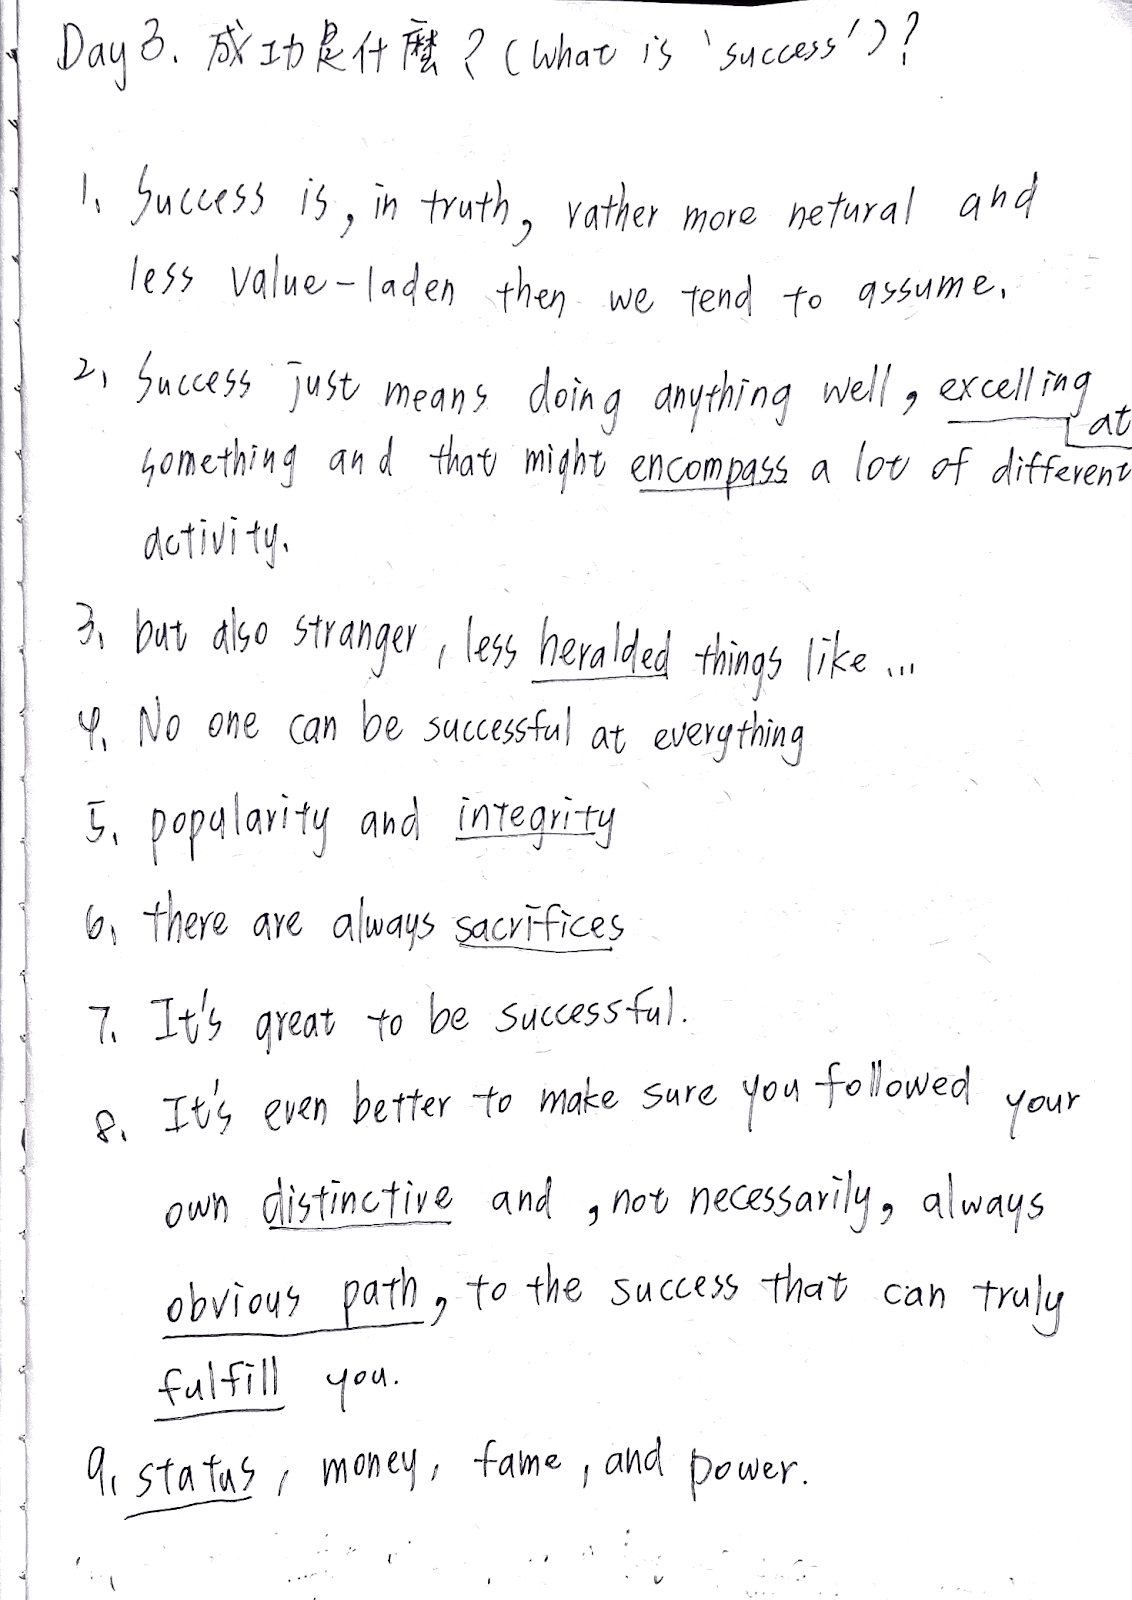 Day 3. 成功是什麼？(What is 'success')?
1. Success is, in truth, rather more netural and
less value-laden then we tend to assume.
2. Success just means doing anything well, excelling at
something and that might encompass a lot of different
activity.
3. but also stranger, less heralded things like ...
4. No one can be successful at everything
5. popularity and integrity
6. there are always sacrifices
7. It's great to be successful.
8. It's even better to make sure you followed your
own distinctive and , not necessarily, always
obvious path, to the success that can truly
fulfill you.
9. status, money, fame, and power.